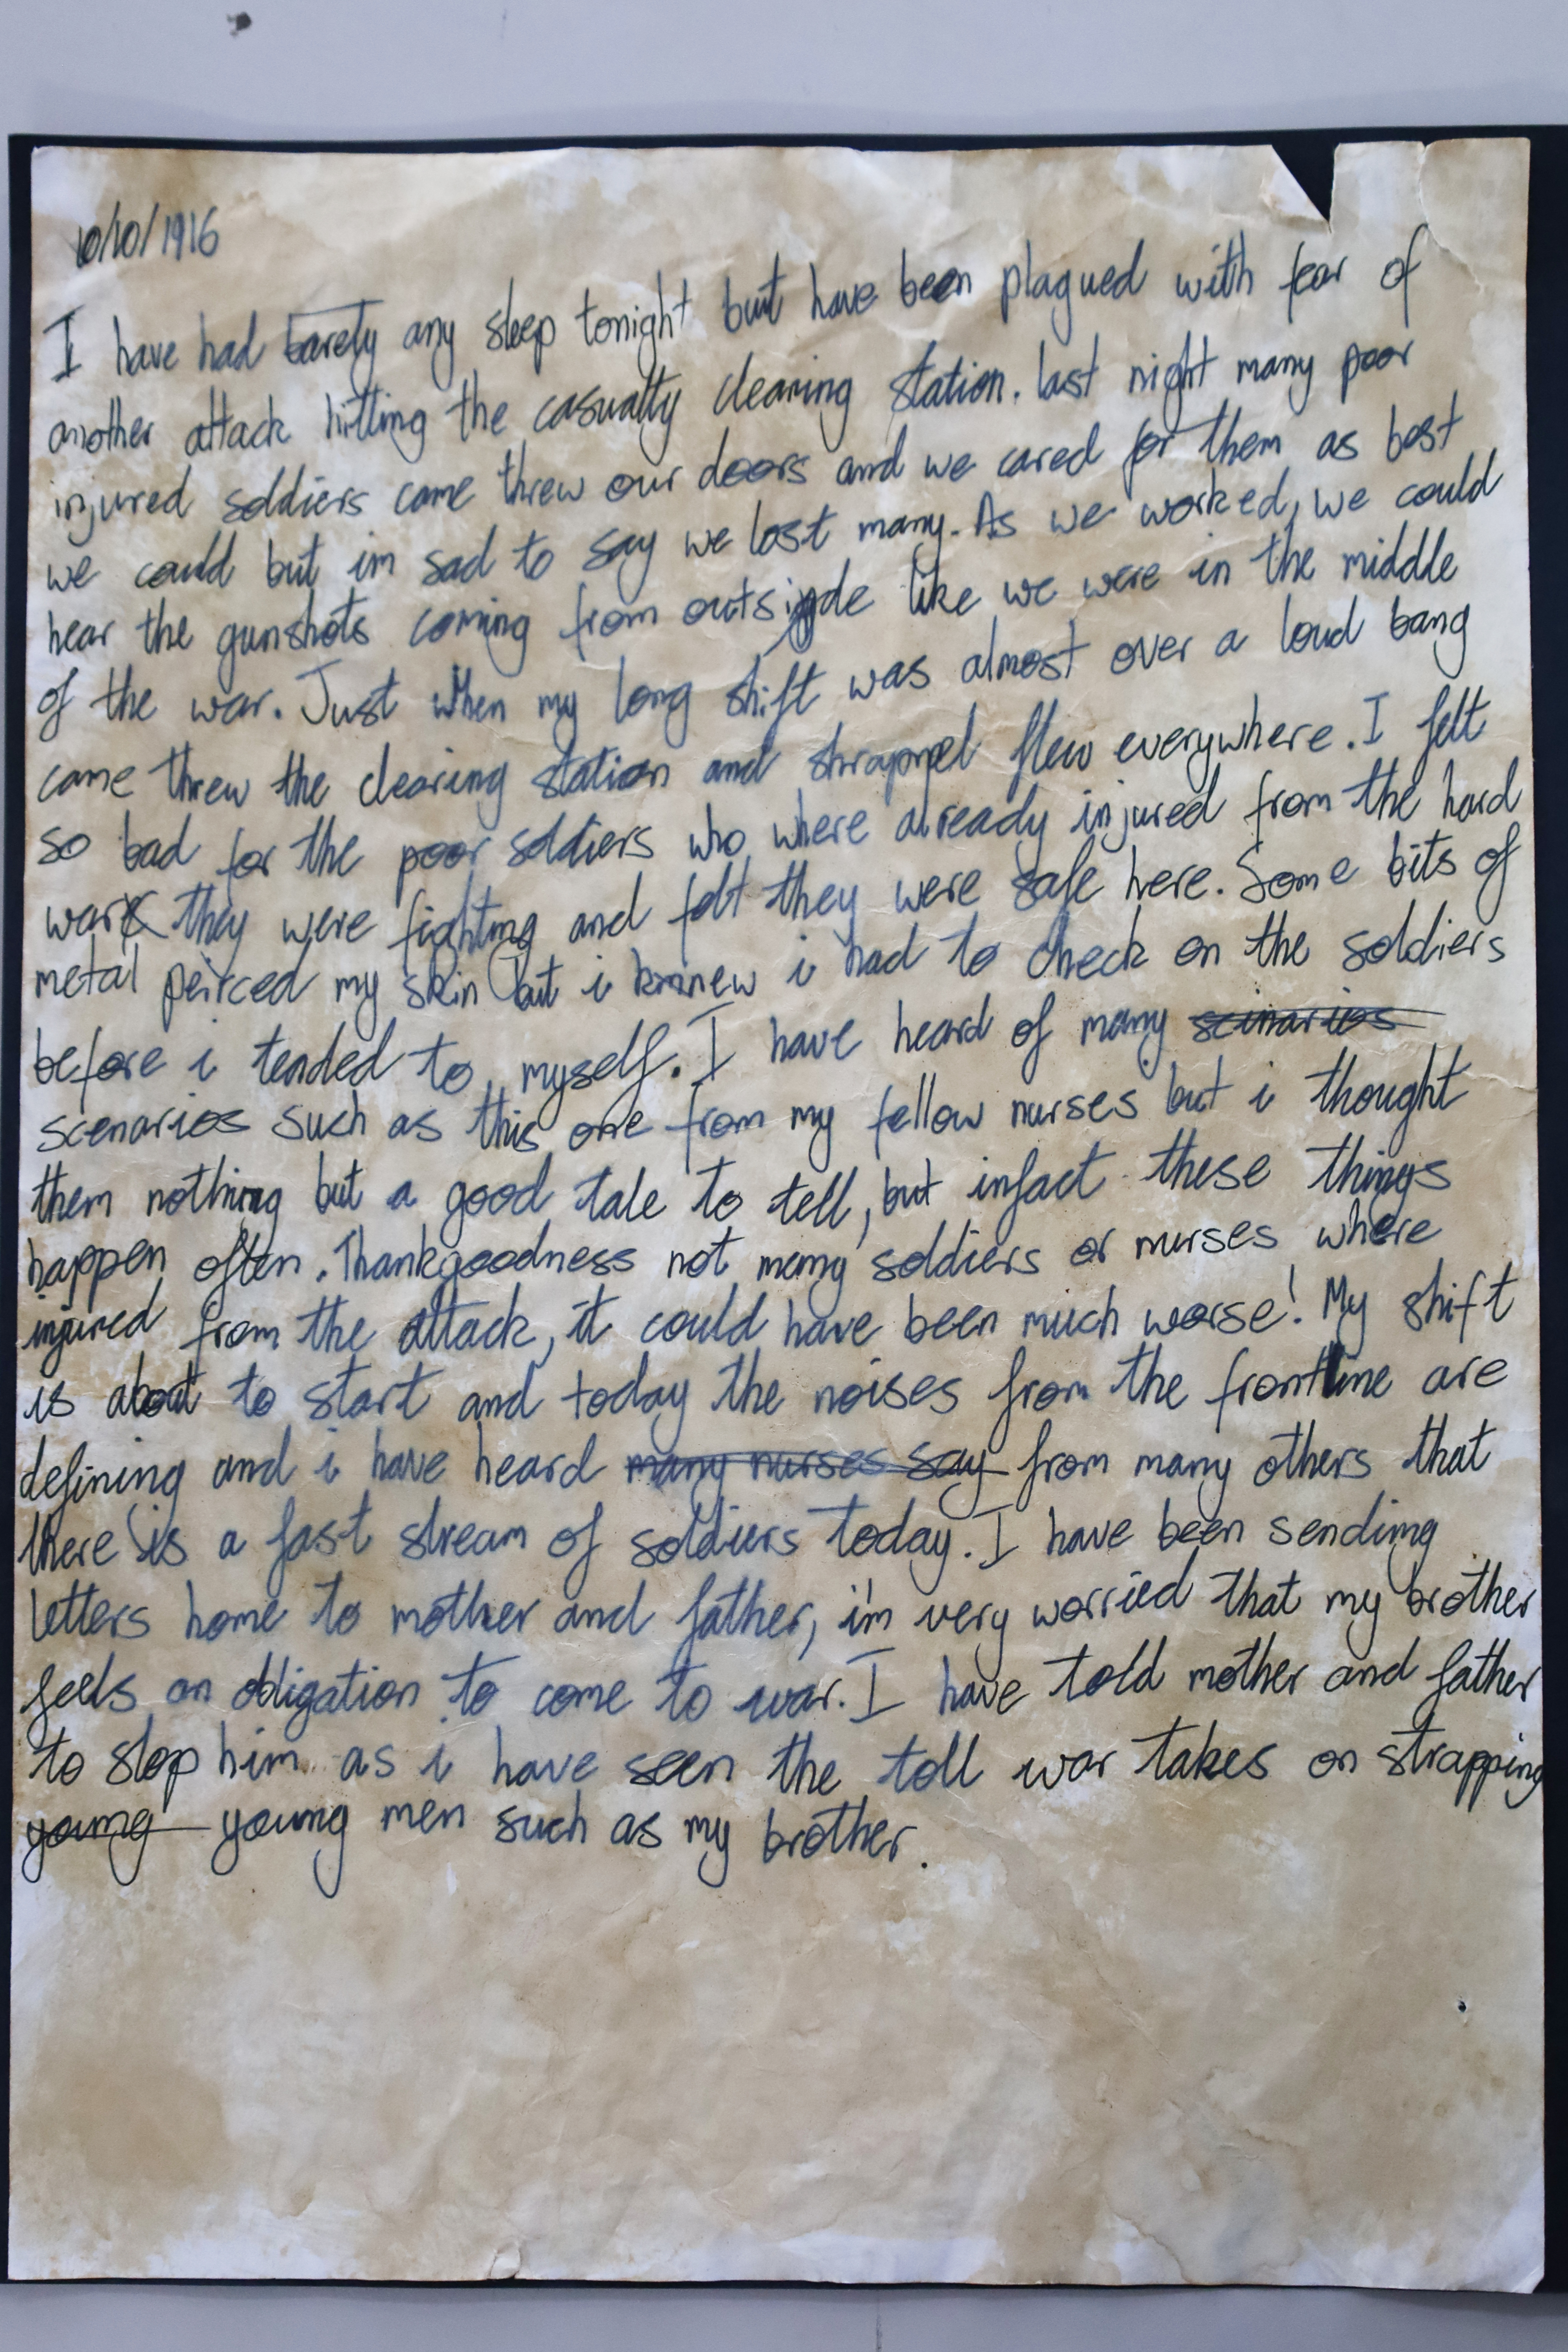 10/10/1916
I have had barely any sleep tonight but have been plagued with fear of
another attack hitting the casualty clearing station. last night many poor
injured soldiers came threw our doors and we cared for them as best
we could but im sad to say we lost many. As we worked, we could
hear the gunshots coming from outside like we were in the middle
of the war. Just when my long shift was almost over a loud bang
came threw the clearing station and shrapnel flew everywhere. I felt
so bad for the poor soldiers who where already injured from the hard
war they were fighting and felt they were safe here. Some bits of
metal peirced my skin but i knew i had to check on the soldiers
before i tended to myself. I have heard of many scinarios
scenarios such as this one from my fellow nurses but i thought
them nothing but a good tale to tell, but infact these things
happen often. Thankgoodness not many soldiers or nurses where
injured from the attack, it could have been much worse! My shift
is about to start and today the noises from the frontline are
defining and i have heard many nurses say from many others that
there is a fast stream of soldiers today. I have been sending
letters home to mother and father, i'm very worried that my brother
feels an obligation to come to war. I have told mother and father
to stop him as i have seen the toll war takes on strapping
young young men such as my brother.